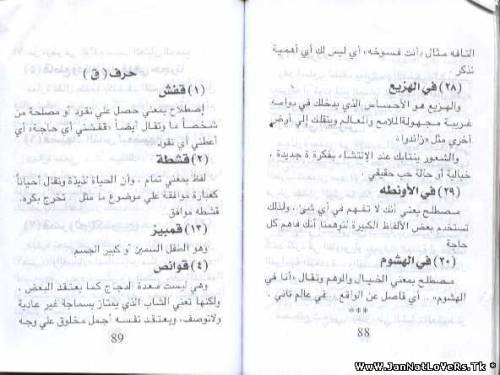 التافه مثال «أنت فسوخه» أي ليس لك أي أهمية
تذكر
(٢٨) في الهزيع
والهزيع هو الأحساس الذي يدخلك في دوامه
غريبة مجهولة الملامح والمعالم وينقلك إلي أرض
أخري مثل «زاندوا»
والشعور ينتابك عند الإنتشاء بفكرة جديدة ،
خيالية أو حالة حب حقيقي
(٢٩) في الأونطه
مصطلح يعني أنك لا تفهم في أي شئ .. ولذلك
تستخدم بعض الألفاظ الكبيرة لتوهمنا أنك فاهم كل
حاجة
(٣٠) في الهشوم
مصطلح بمعني الخيال والوهم وتقال «أنا في
الهشوم» .. أي فاصل عن الواقع .. في عالم تاني .
***
88
حرف ( ق )
(١) قفش
إصطلاح بمعني حصل علي نقود أو مصلحة من
شخص ما وتقال أيضاً «قفشني أي حاجة» أي
أعطني أي نقود
(٢) قشطة
لفظ بمعني تمام .. وأن الحياة لذيذة وتقال أحياناً
كعبارة موافقة علي موضوع ما مثل .. تخرج بكره.
قشطه موافق.
(٣) قمبيز
وهو الطفل السمين أو كبير الجسم
(٤) قوانص
وهي ليست معدة الدجاج كما يعتقد البعض ..
ولكنها تعني الشاب الذي يمتاز بسماجة غير عادية
ولاتوصف، ويعتقد نفسه أجمل مخلوق علي وجه
89
WwW.JanNatLoVeRs.Tk *